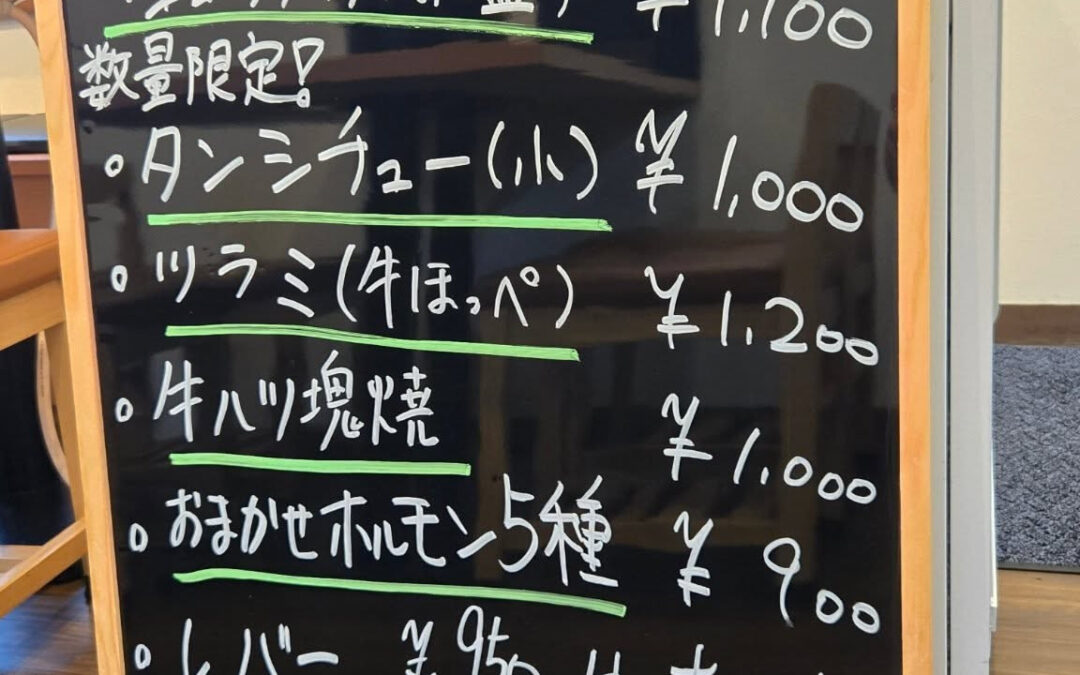 ¥1,100
数量限定!
・タンシチュー(小) ¥1,000
・ツラミ(牛ほっぺ) ¥1,200
・牛ハツ塊焼 ¥1,000
・おまかせホルモン5種 ¥900
・レバー ¥950